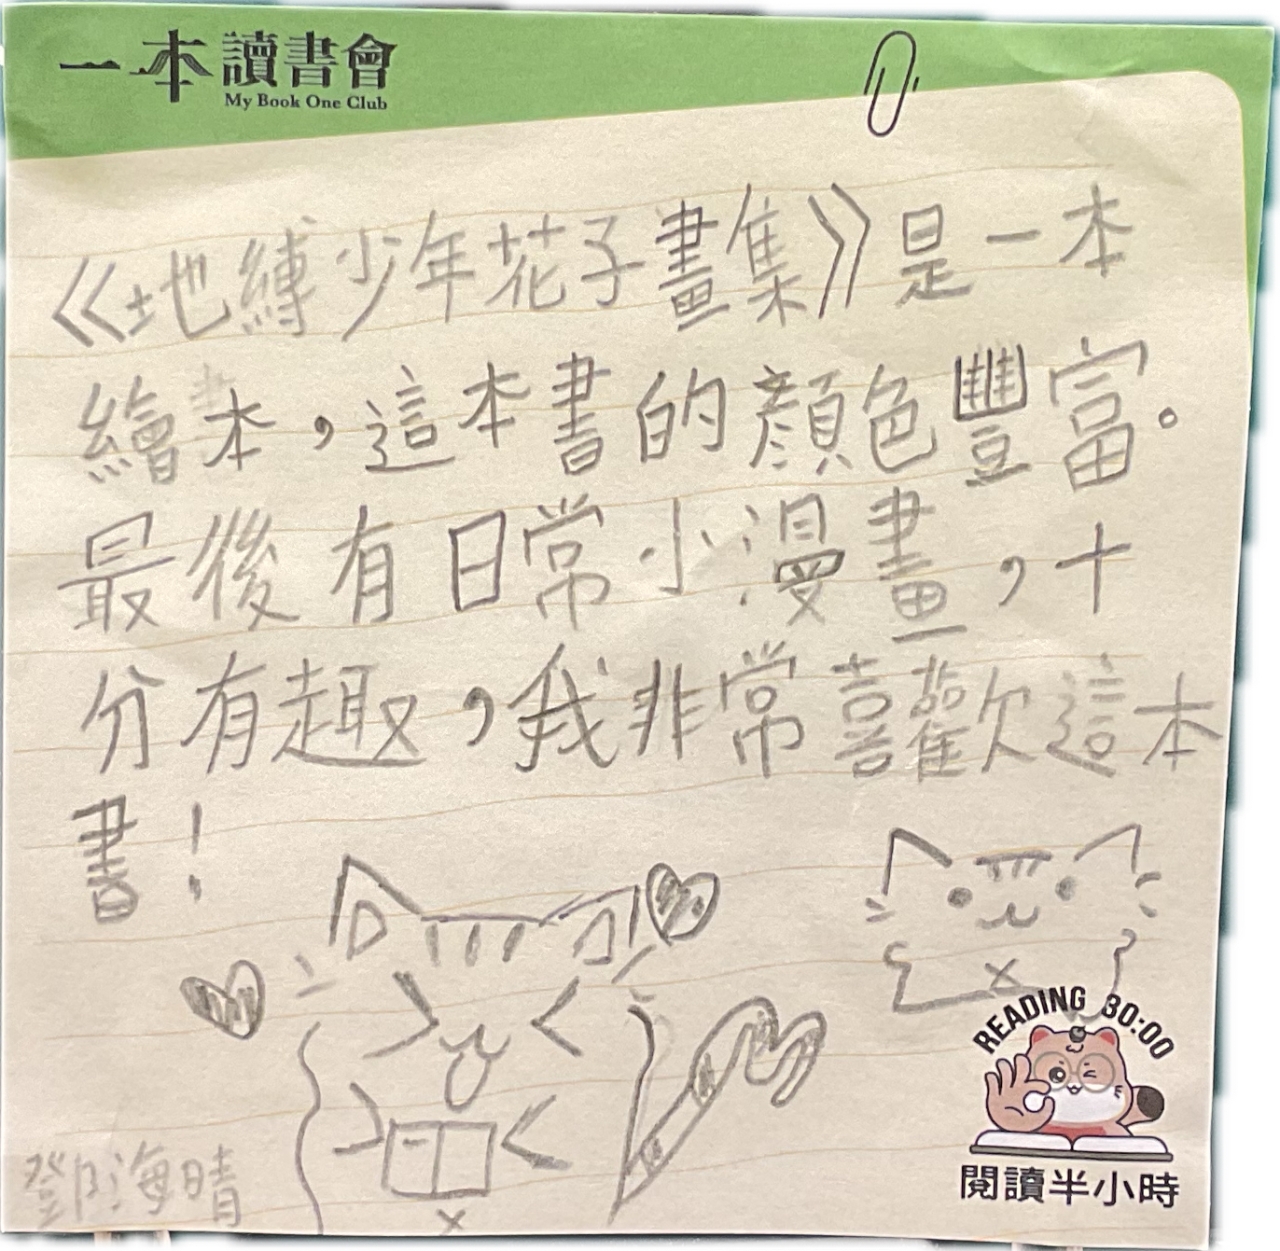 一本讀書會
My Book One Club
《地縛少年花子畫集》是一本
繪本，這本書的顏色豐富。
最後有日常小漫畫，十
分有趣，我非常喜歡這本
書！
鄧海晴
READING 30:00
閱讀半小時